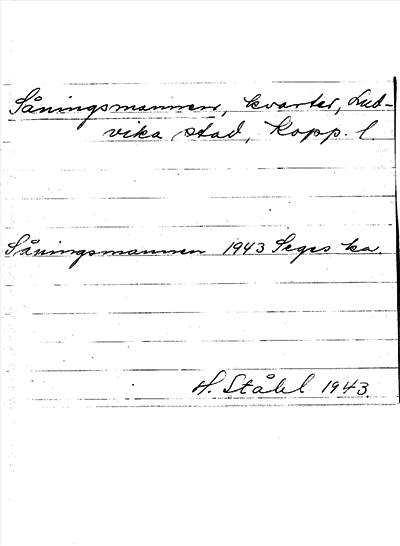 Såningsmannen, kvarter, Lud-
vika stad, Kopp. l.
Såningsmannen 1943 Segrs ka.
H. Ståhl 1943